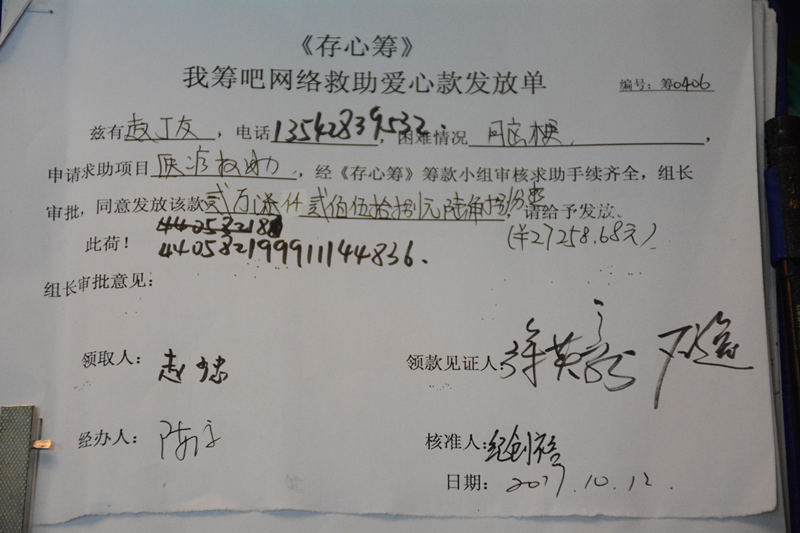 《存心筹》
我筹吧网络救助爱心款发放单
编号：筹0406
兹有 友 ，电话 13542839532 ，困难情况 ，
申请求助项目 医疗救助 ，经《存心筹》筹款小组审核求助手续齐全，组长
审批，同意发放该款 贰万柒仟贰佰伍拾捌元陆角捌分整 。请给予发放、
此荷！ (¥27258.68元)
440582199911144836.
组长审批意见：
领取人： 领款见证人：
经办人： 核准人：纪创
日期： 2017.10.12.